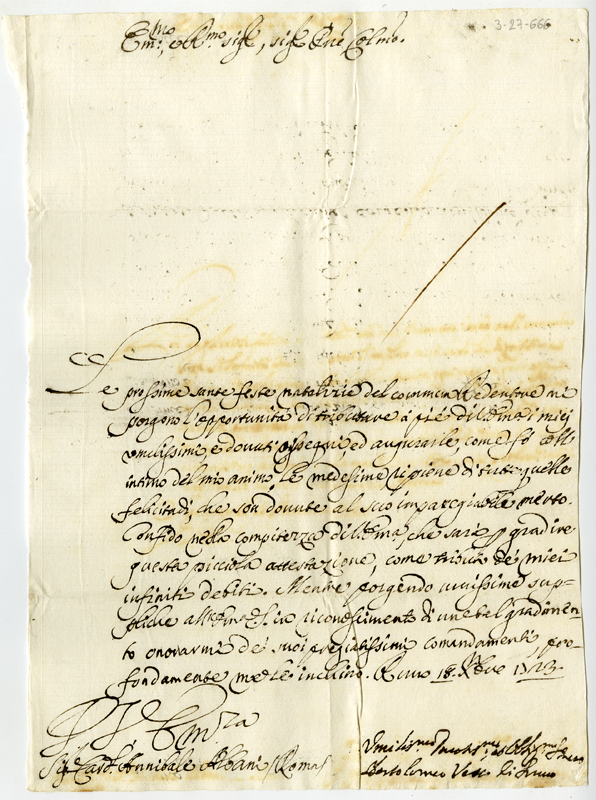 3-27-666
Em.mo, e R.mo Sig.re, Sig.re Pne Colmo.
Le prossime sante feste natalizie del commun Redentore mi
porgono l'opportunità di tributare à piè di V. Em.za i miei
umilissimi, e dovuti ossequi, ed augurarle, come fò dall
intimo del mio animo, le medesime ripiene di tutte quelle
felicitadi, che son dovute al suo impareggiabile merito.
Confido nella compitezza di V. Em.za, che sarà per gradire
questa picciola attestazione, come tributo de miei
infiniti debiti. Mentre porgendo vivissime sup=
pliche all'Em.za S. in riconoscimento di un tal gradimen=
to onorarmi dei suoi pregiatissimi comandamenti, pro=
fondamente me le inclino. 18. Xbre 1713.
Di V. Em.za
Sig.re Card. Annibale Albani Roma
Umiliss.mo
Bartolomeo Vesc.